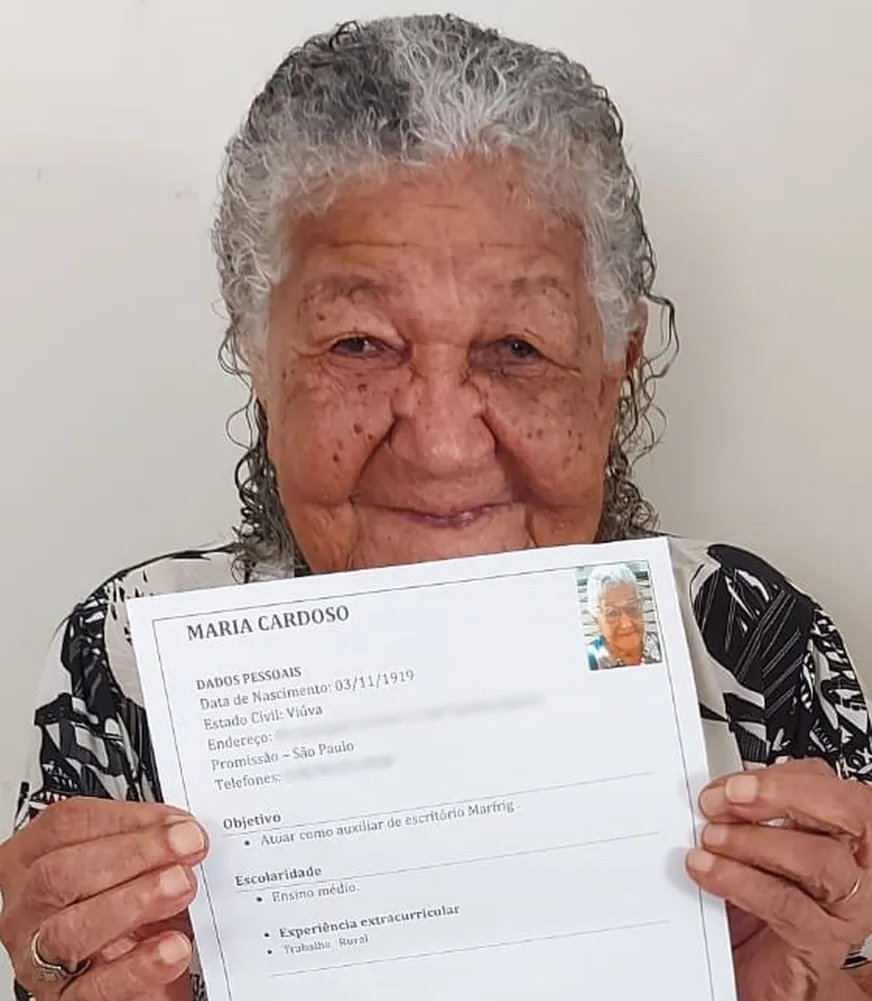 MARIA CARDOSO
DADOS PESSOAIS
Data de Nascimento: 03/11/1919
Estado Civil: Viúva
Endereço:
Promissão – São Paulo
Telefones:
Objetivo
• Atuar como auxiliar de escritório Marfrig.
Escolaridade
• Ensino médio.
• Experiência extracurricular
• Trabalho Rural